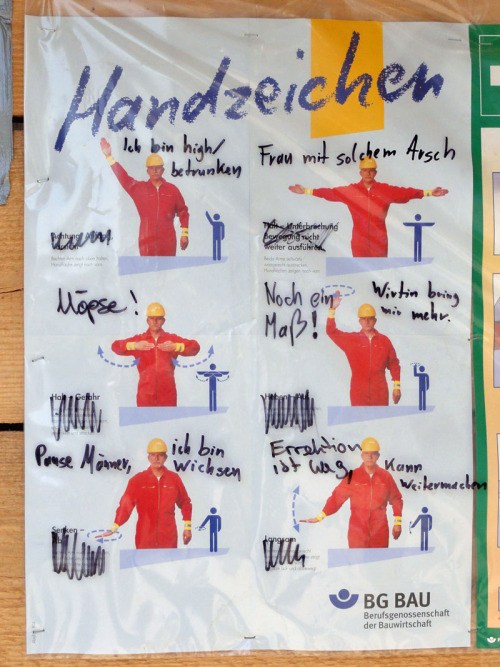 Handzeichen
Ich bin high/
betrunken
Achtung
Frau mit solchem Arsch
Halt - Unterbrechung
Bewegung nicht
weiter ausführen
Möpse!
Halt - Gefahr
Noch ein
Maß!
Wirtin bring
mir mehr.
Pause Männer,
ich bin
Wichsen
Senken -
Errektion
ist weg,
Kann
weitermachen
Langsam
BG BAU
Berufsgenossenschaft
der Bauwirtschaft